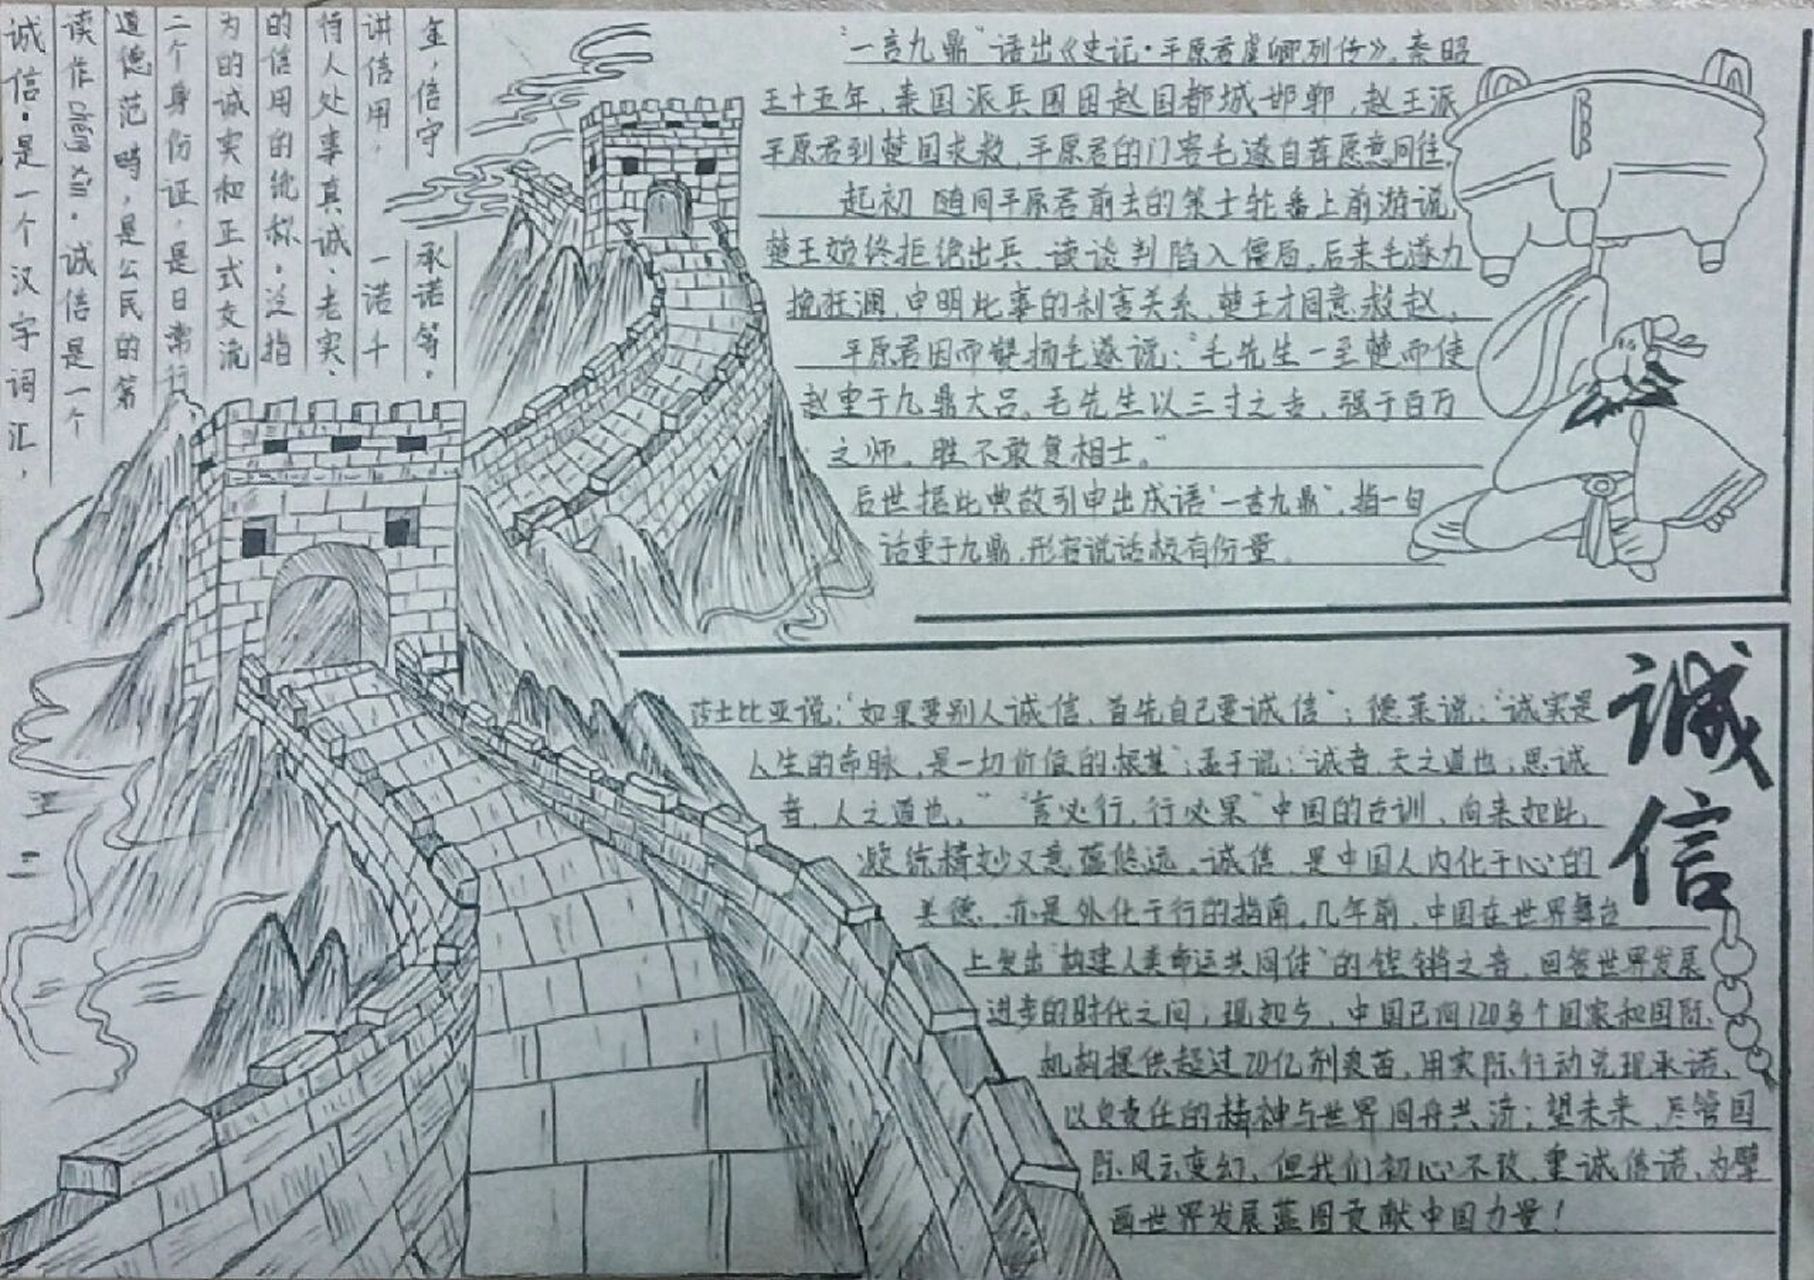 诚信·是一个汉字词汇，
读作chéng xìn。诚信是一个
道德范畴，是公民的第
二个身份证，是日常行
为的诚实和正式交流
的信用的统称。泛指
待人处事真诚、老实、
讲信用，一诺千
金，信守承诺等。
“一言九鼎”语出《史记·平原君虞卿列传》。秦昭
王十五年，秦国派兵围困赵国都城邯郸，赵王派
平原君到楚国求救，平原君的门客毛遂自荐愿意同往。
起初 随同平原君前去的策士轮番上前游说，
楚王始终拒绝出兵、读谈判陷入僵局。后来毛遂力
挽狂澜，申明此事的利害关系，楚王才同意救赵。
平原君因而赞扬毛遂说：“毛先生一至楚而使
赵重于九鼎大吕。毛先生以三寸之舌，强于百万
之师。胜不敢复相士。”
后世据此典故引申出成语“一言九鼎”，指一句
话重于九鼎，形容说话极有份量。
诚信
莎士比亚说：“如果要别人诚信，首先自己要诚信”；德莱说：“诚实是
人生的命脉，是一切价值的根基”；孟子说：“诚者，天之道也；思诚
者，人之道也。”“言必行，行必果”中国的古训，向来如此，
凝练精妙又意蕴悠远。诚信，是中国人内化于心的
美德，亦是外化于行的指南。几年前，中国在世界舞台
上发出“构建人类命运共同体”的铿锵之音，回答世界发展
进步的时代之问；现如今，中国已向120多个国家和国际
机构提供超过20亿剂疫苗，用实际行动兑现承诺，
以负责任的精神与世界同舟共济；望未来，尽管国
际风云变幻，但我们初心不改，重诚信诺，为擘
画世界发展蓝图贡献中国力量！